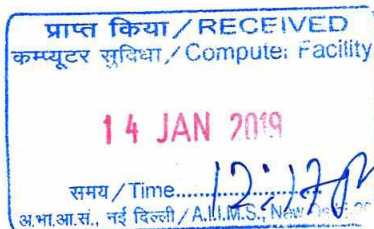 प्राप्त किया / RECEIVED
कम्प्यूटर सुविधा / Computer Facility
14 JAN 2019
समय / Time..........12:17 PM
अ.भा.आ.सं., नई दिल्ली / A.I.I.M.S., New